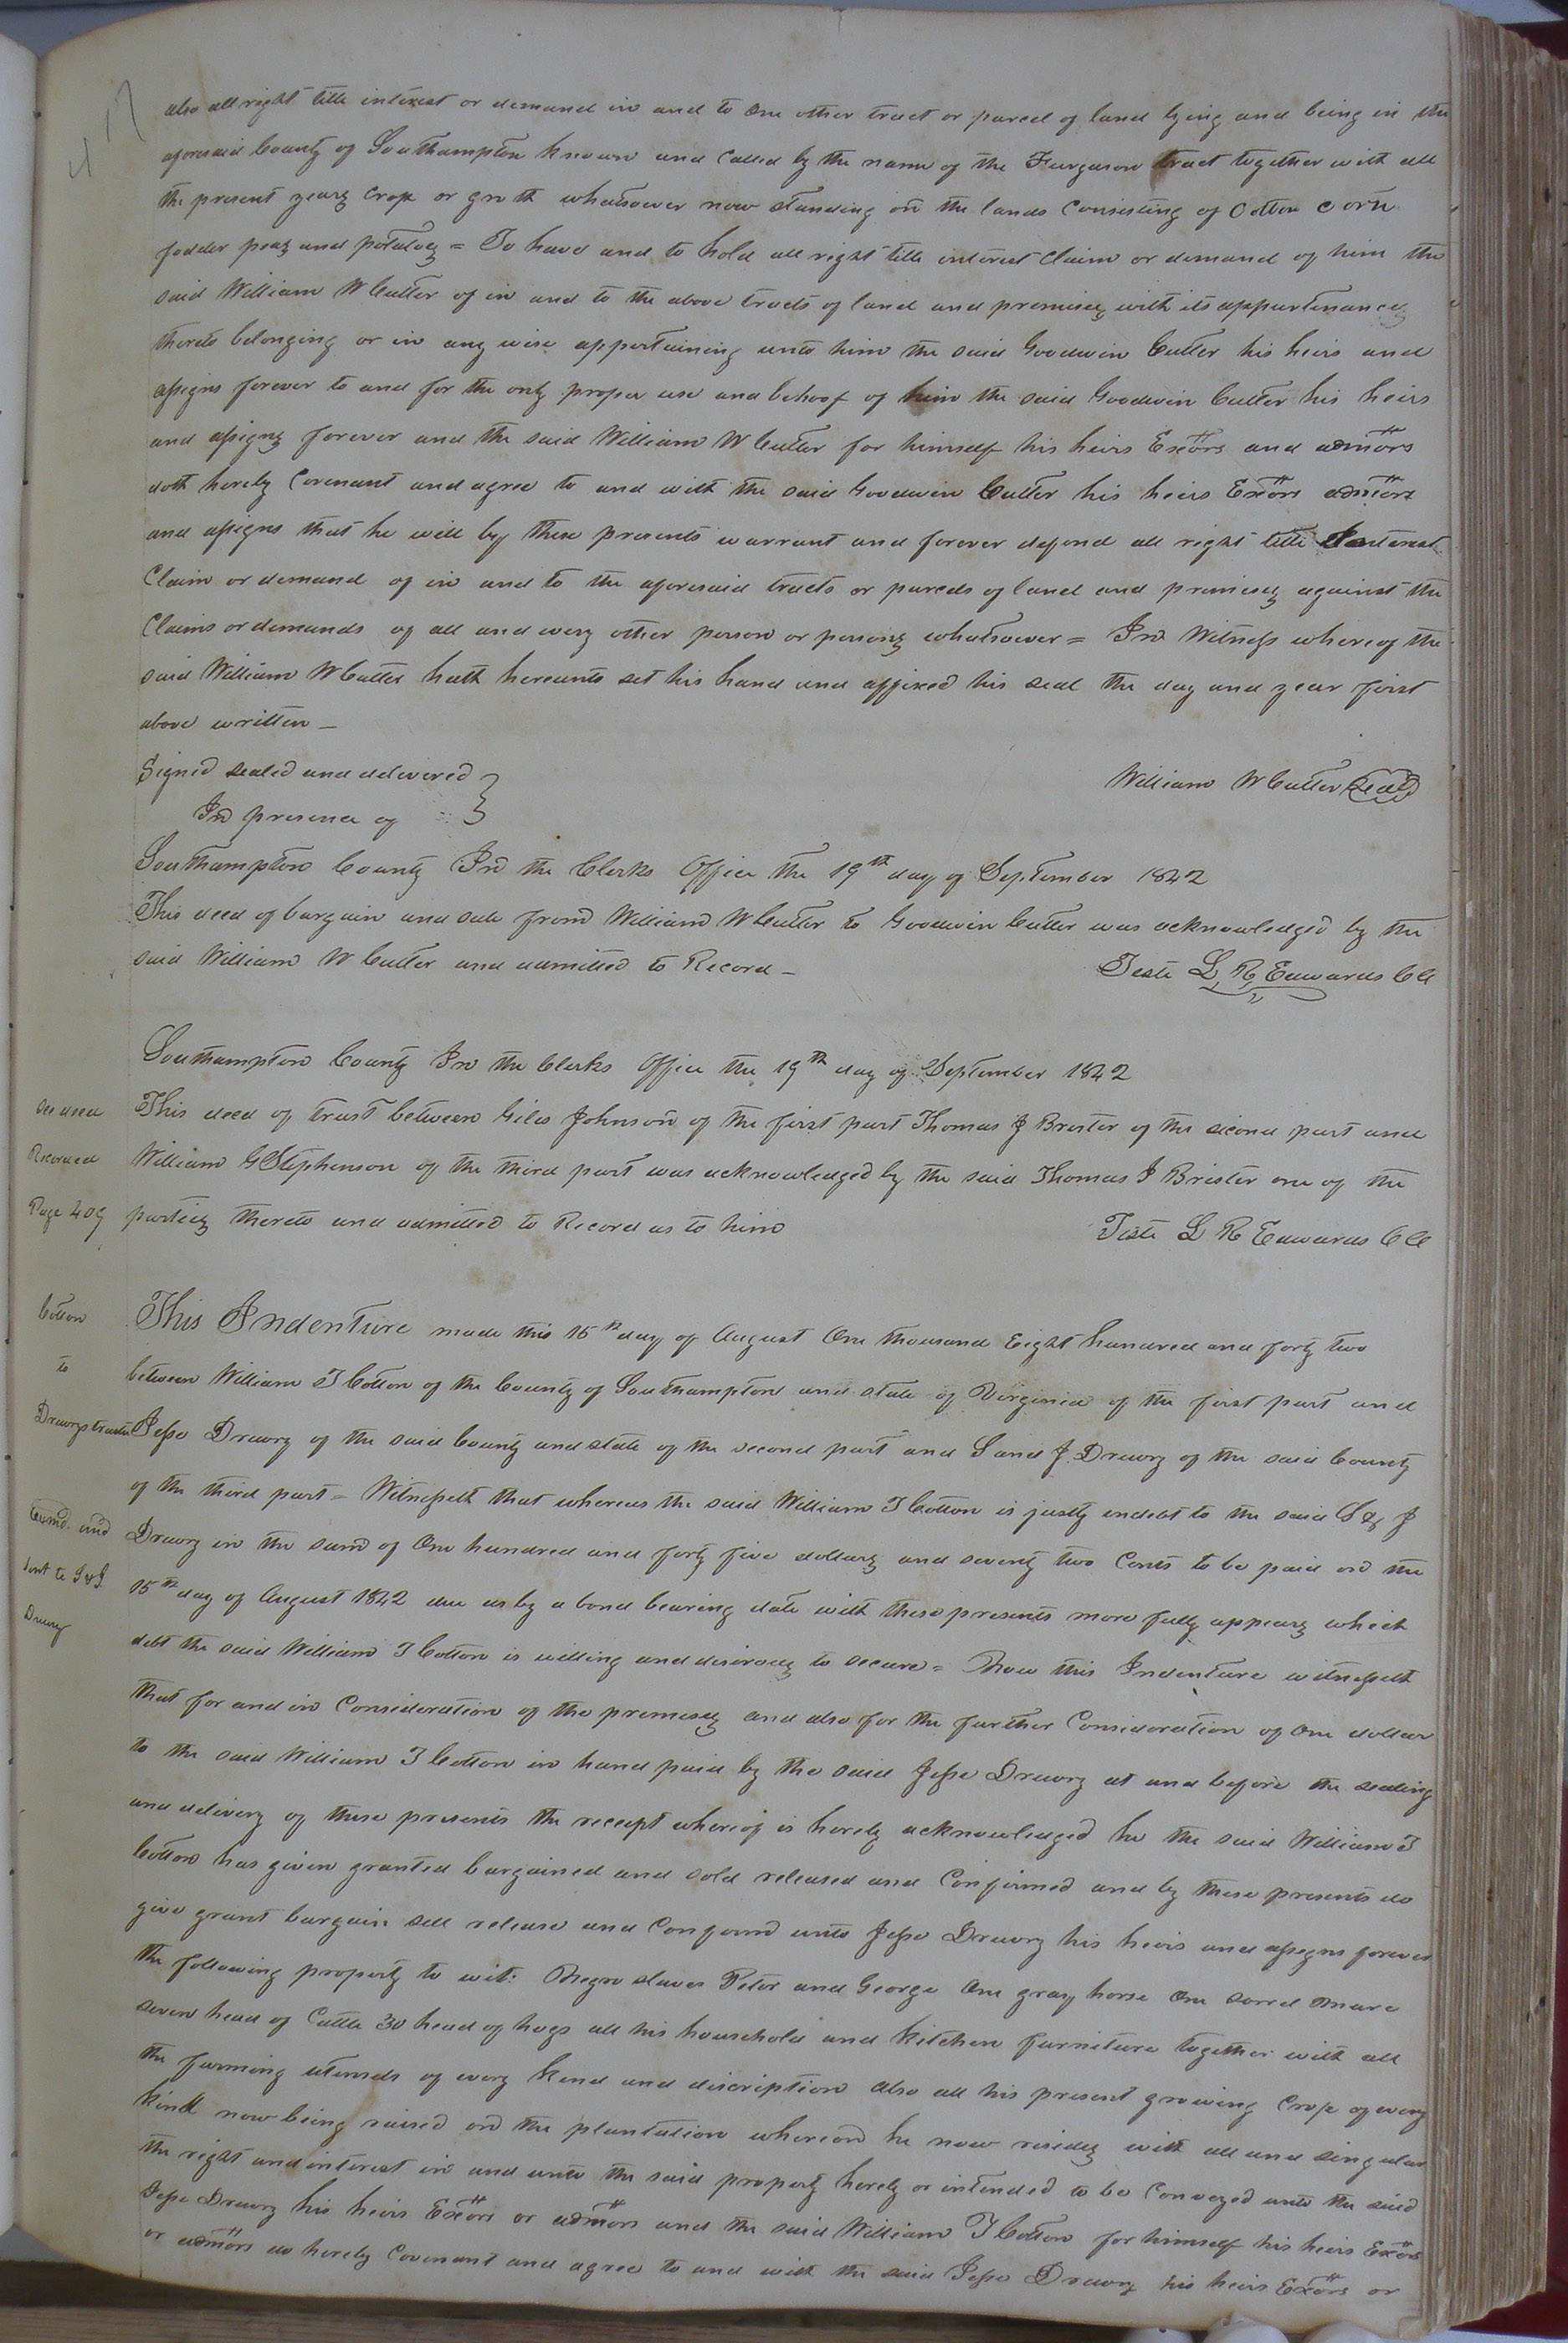 417
also all right title interest or demand in and to One other tract or parcel of land lying and being in the
aforesaid County of Southampton known and Called by the name of the Furgason tract together with all
the present years Crop or groth whatsoever now standing on the lands Consisting of Cotton corn
fodder peas and potatoes = To have and to hold all right title interest Claim or demand of him the
said William W Cutler of in and to the above tracts of land and premises with its appurtenances
thereto belonging or in any wise appertaining unto him the said Goodwin Cutler his heirs and
assigns forever to and for the only proper use and behoof of him the said Goodwin Cutler his heirs
and assigns forever and the said William W Cutler for himself his heirs Exors and admors
doth hereby Covenant and agree to and with the said Goodwin Cutler his heirs Exors admors
and assigns that he will by these presents warrant and forever defend all right title Interest
Claim or demand of in and to the aforesaid tracts or parcels of land and premises against the
Claims or demands of all and every other person or persons whatsoever = In Witness whereof the
said William W Cutler hath hereunto set his hand and affixed his seal the day and year first
above written –
Signed sealed and delivered }
In presence of
William W Cutler Seal
Southampton County In the Clerks Office the 19th day of September 1842
This deed of bargain and sale from William W Cutler to Goodwin Cutler was acknowledged by the
said William W Cutler and admitted to Record –
Teste L R Edwards CC
Southampton County In the Clerks Office the 19th day of September 1842
See deed
Recorded
Page 409
This deed of trust between Giles Johnson of the first part Thomas J Brister of the second part and
William G Stephenson of the third part was acknowledged by the said Thomas J Brister one of the
parties thereto and admitted to Record as to him
Teste L R Edwards CC
Cotton
to
Drurys trustee
Examd. and
sent to S & J
Drury
This Indenture made this 15th day of August One thousand Eight hundred and forty two
between William T Cotton of the County of Southampton and state of Virginia of the first part and
Jesse Drewry of the said County and state of the second part and S and J. Drewry of the said County
of the third part = Witnesseth that whereas the said William T Cotton is justly indebt to the said S & J
Drewry in the sum of One hundred and forty five dollars and seventy two Cents to be paid on the
15th day of August 1842 due as by a bond bearing date with these presents more fully appears which
debt the said William T Cotton is willing and desirous to secure = Now this Indenture witnesseth
that for and in Consideration of the premises and also for the further Consideration of One dollar
to the said William T Cotton in hand paid by the said Jesse Drewry at and before the sealing
and delivery of these presents the receipt whereof is hereby acknowledged he the said William T
Cotton has given granted bargained and sold released and Confirmed and by these presents do
give grant bargain sell release and Confirm unto Jesse Drewry his heirs and assigns forever
the following property to wit: Negro slaves Peter and George One gray horse One sorrel mare
seven head of Cattle 30 head of hogs all his household and kitchen furniture together with all
the farming utensils of every kind and discription also all his present growing Crop of every
kind now being raised on the plantation whereon he now resides with all and singular
the right and interest in and unto the said property hereby or intended to be Conveyed unto the said
Jesse Drewry his heirs Exors or admors and the said William T Cotton for himself his heirs Exors
or admors do hereby Covenant and agree to and with the said Jesse Drewry his heirs Exors or